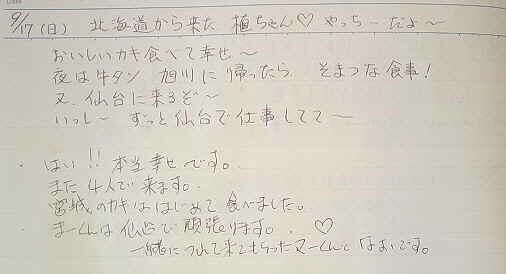 9/17(日) 北海道から来た 植ちゃん♡ やっちーだよ〜
おいしいカキ食べて幸せ〜
夜は牛タン 旭川に帰ったら そまつな食事!
又、仙台に来るぞ〜
いっしー ずっと仙台で仕事してて〜
・はい!! 本当幸せです。
また4人で来ます。
宮城のカキははじめて食べました。
まーくんは仙台で頑張ります。 ♡
一緒につれて来てもらったまーくんに です。